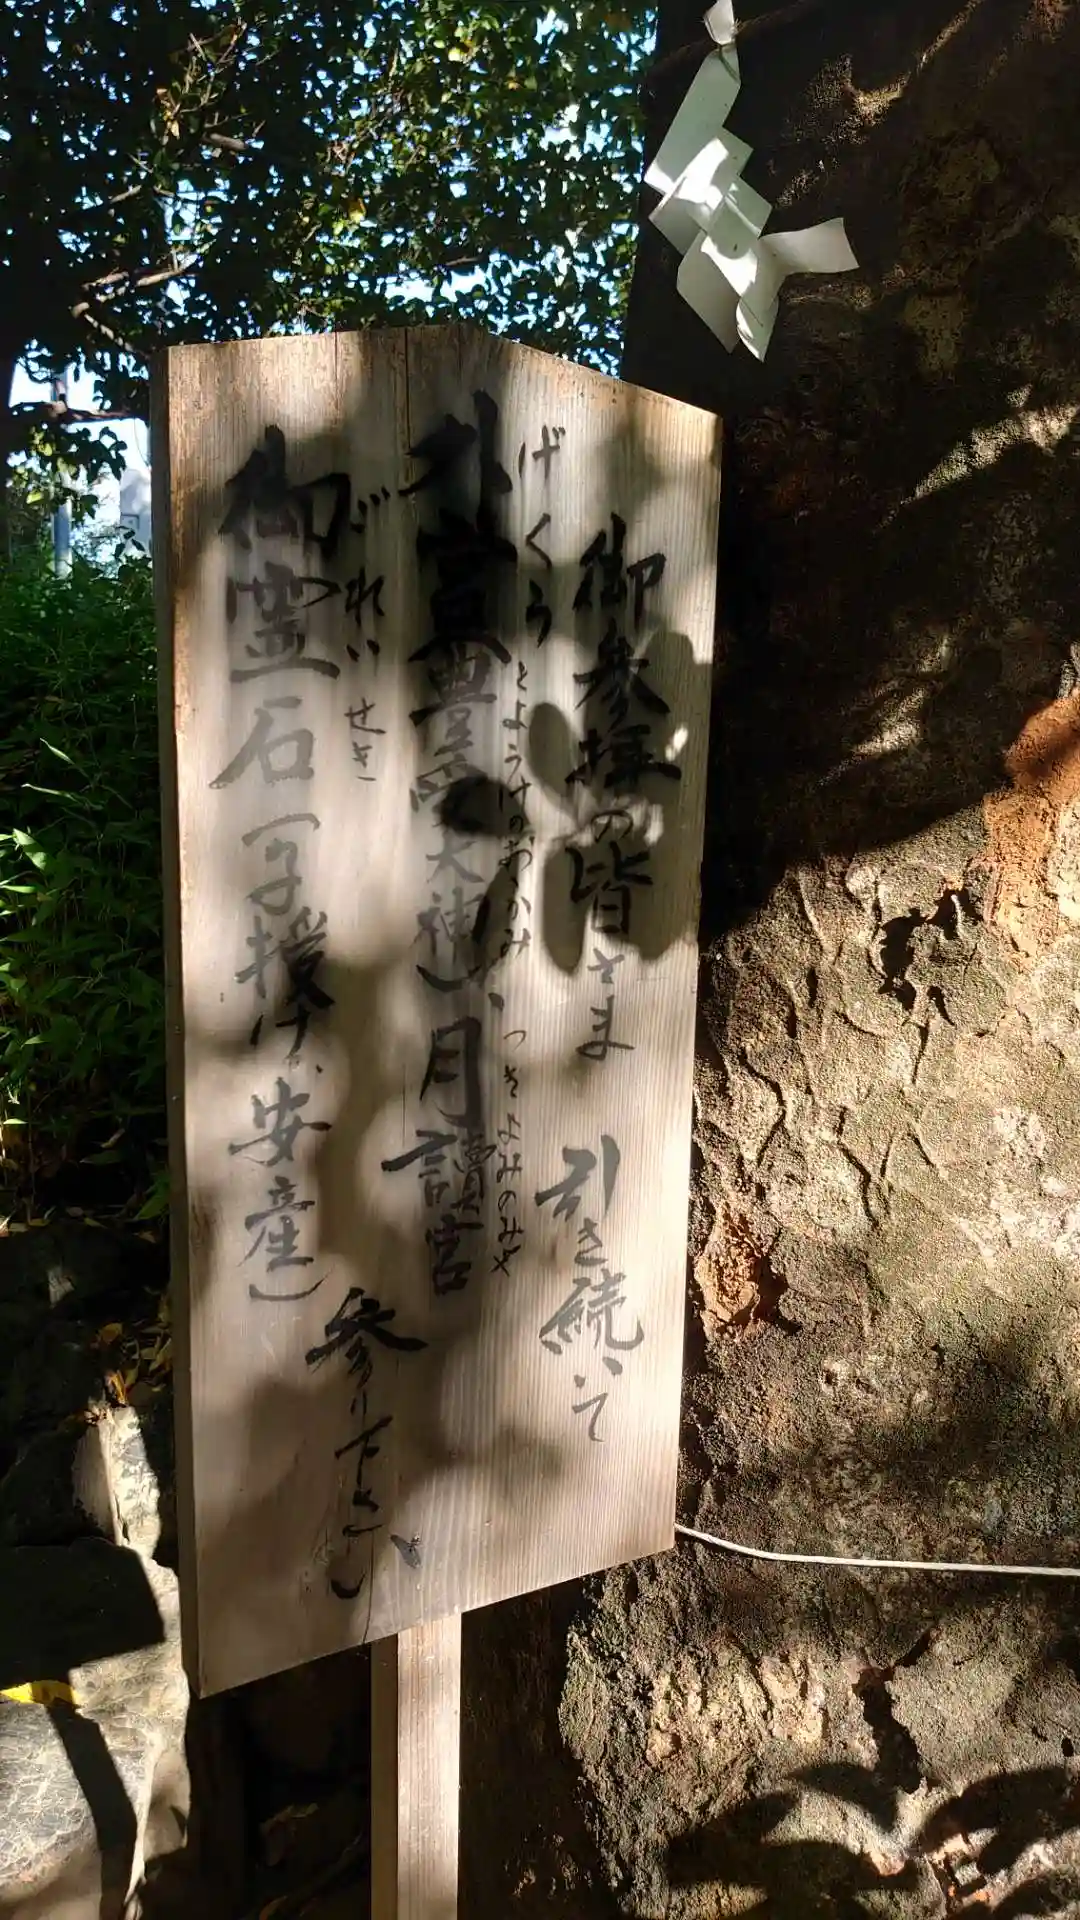 御参拝の皆さま 引き続いて
げくう とようけのおおかみ つきよみのみや
外宮(豊受大神)、月讀宮
ごれいせき
御霊石(子授け、安産)
参り下さい